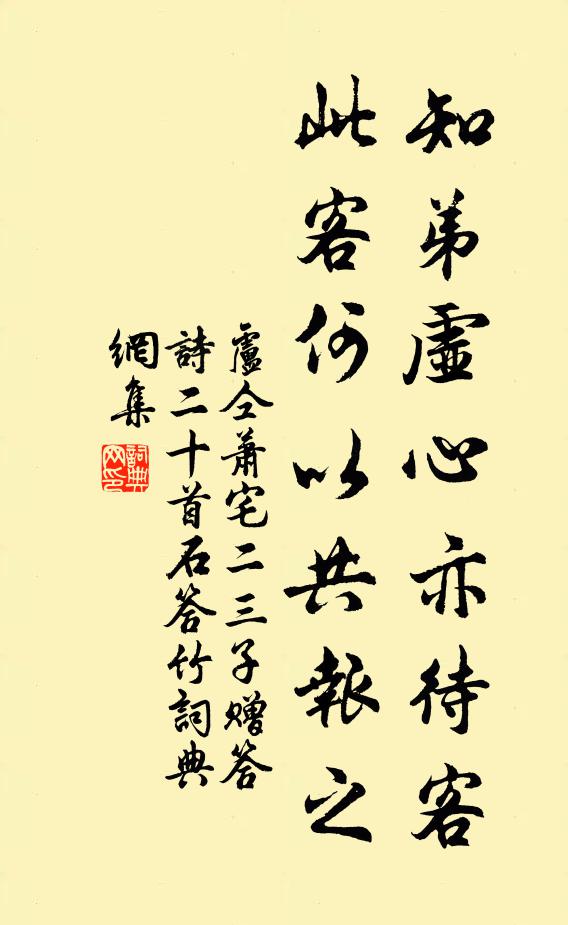 知弟虛心亦待客
此客何以共報之
盧仝蕭宅二三子贈答
詩二十首石答竹詞典
網集
詞典
网印